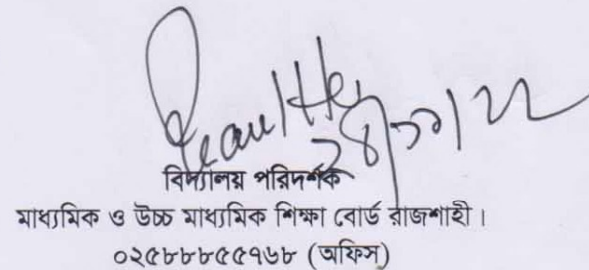 ২৪/১১/২২
বিদ্যালয় পরিদর্শক
মাধ্যমিক ও উচ্চ মাধ্যমিক শিক্ষা বোর্ড রাজশাহী।
০২৫৮৮৮৫৫৭৬৮ (অফিস)